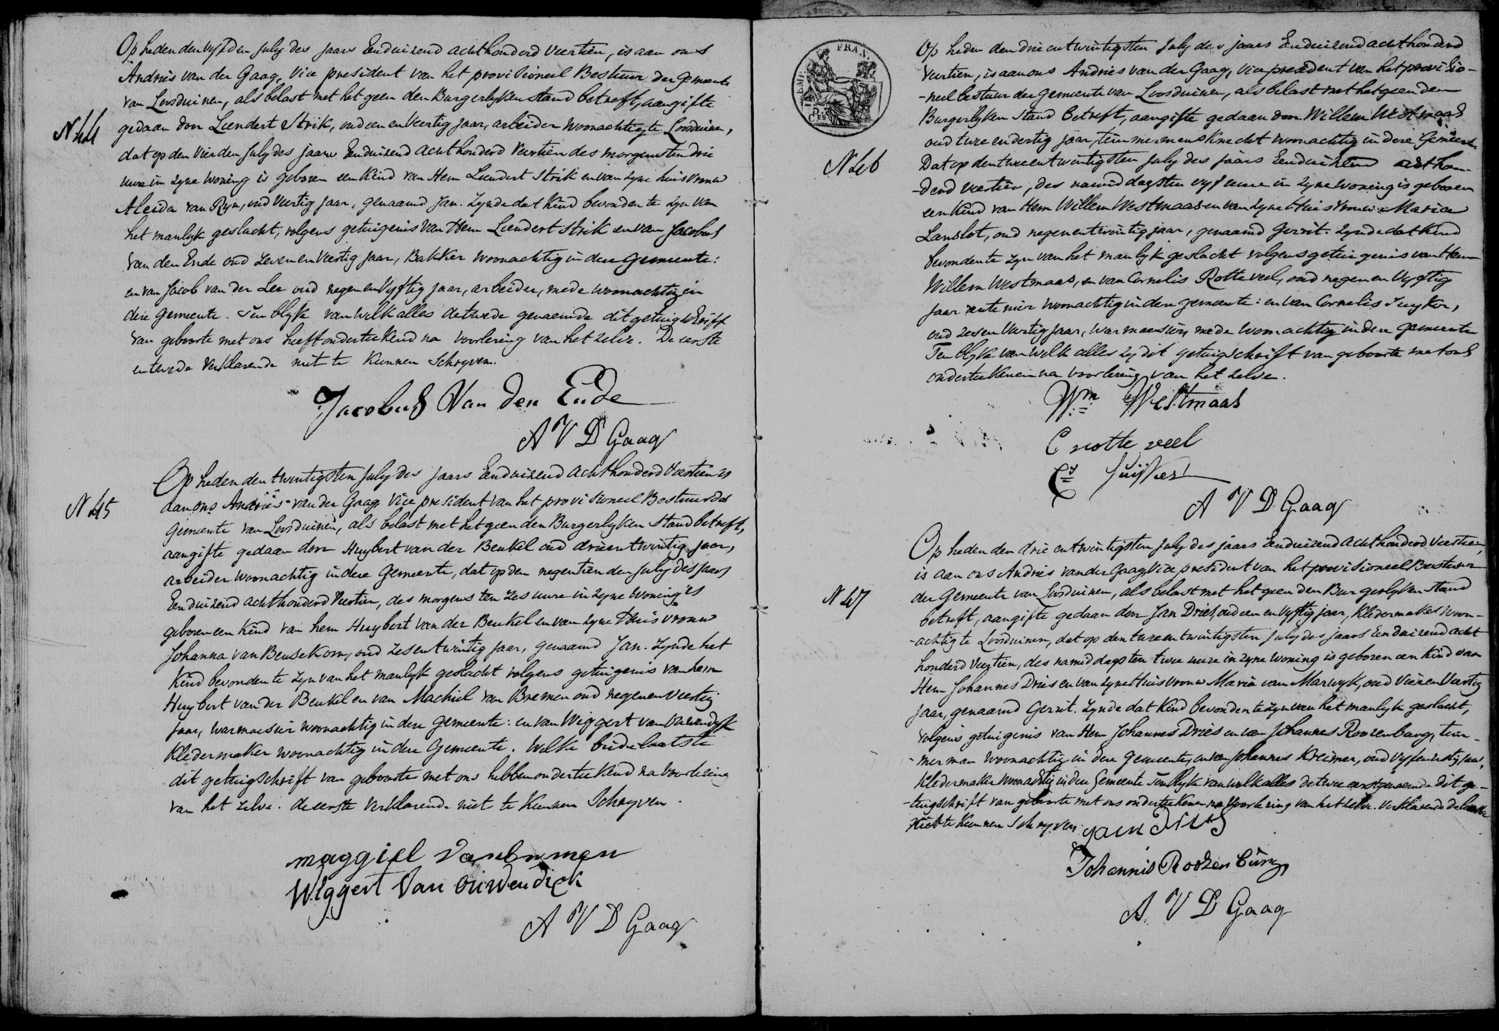 N 44
Op heden den vyfden July des jaars Eenduizend achthonderd veertien, is aan ons
Andries van der Gaag, Vice president van het provisioneel Bestuur der Gemeente
van Loosduinen, als belast met het geen den Burgerlyken Stand betreft, aangifte
gedaan door Leendert Strik, oud een en veertig jaar, arbeider woonachtig te Loosduinen,
dat op den vierden July des jaars Eenduizend achthonderd veertien des morgens ten drie
uure in zyne woning is geboren een kind van Hem Leendert Strik en van zyne huisvrouw
Aleida van Ryn, oud veertig jaar, genaamd Jan. Zynde dat kind bevonden te zyn van
het manlyk geslacht, volgens getuigenis van Hem Leendert Strik en van Jacobus
van den Ende oud zeven en veertig jaar, Bakker woonachtig in deze Gemeente:
en van Jacob van der Lee oud negen en vyftig jaar, arbeider, mede woonachtig in
deze Gemeente. Ten blyke van welk alles de tweede genoemde dit getuigschrift
van geboorte met ons heeft ondertekend na voorlezing van het zelve. De eerste
en derde verklarende niet te kunnen Schryven.
Jacobus Van den Ende
A V D Gaag
N 45
Op heden den twintigsten July des jaars Eenduizend achthonderd veertien is
aan ons Andries van der Gaag Vice president van het provisioneel Bestuur der
Gemeente van Loosduinen, als belast met het geen den Burgerlyken Stand betreft,
aangifte gedaan door Huybert van der Beukel oud drie en twintig jaar,
arbeider woonachtig in deze Gemeente, dat op den negentienden July des jaars
Eenduizend achthonderd veertien, des morgens ten zes uure in zyne woning is
geboren een kind van hem Huybert van der Beukel en van zyne Huisvrouw
Johanna van Beusekom, oud zes en twintig jaar, genaamd Jan. Zynde het
Kind bevonden te zyn van het manlyk geslacht volgens getuigenis van hem
Huybert van der Beukel en van Machiel van Bremen oud negen en veertig
jaar, warmoesier woonachtig in deze Gemeente: en van Wiggert van
Kledermaker woonachtig in deze Gemeente. Welke beide laatste
dit getuigschrift van geboorte met ons hebben ondertekend na voorlezing
van het zelve. de eerste verklarende niet te kunnen Schryven.
maggiel van bremen
Wiggert Van ouwendyck
A V D Gaag
N 46
Op heden den drie en twintigsten July des jaars Eenduizend achthonderd
veertien, is aan ons Andries van der Gaag, vice president van het provisio-
-neel bestuur der Gemeente van Loosduinen, als belast met het geen den
Burgerlyken Stand betreft, aangifte gedaan door Willem Westmaas
oud twee en dertig jaar, timmermansknecht woonachtig in deze Gemeente
Dat op den twee en twintigsten July des jaars Eenduizend achthon-
-derd veertien, des namiddags ten vyf uure in zyne woning is geboren
een kind van Hem Willem Westmaas en van zyne Huisvrouw Maria
Lanslot, oud negen en twintig jaar, genaamd Gerrit. Zynde dat Kind
bevonden te zyn van het manlyk geslacht volgens getuigenis van Hem
Willem Westmaas, en van Cornelis Rotteveel, oud negen en vyftig
jaar rentenier woonachtig in deze gemeente: en van Cornelis Suyker,
oud zes en veertig jaar, warmoesier, mede woonachtig in deze gemeente
Ten blyke van welk alles zy dit getuigschrift van geboorte met ons
ondertekenen na voorlezing van het zelve.
Wm Westmaas
C rotteveel
Cs Suijker
A V D Gaag
N 47
Op heden den drie en twintigsten July des jaars Eenduizend achthonderd veertien,
is aan ons Andries van der Gaag Vice president van het provisioneel Bestuur
der Gemeente van Loosduinen, als belast met het geen den Burgerlyken stand
betreft, aangifte gedaan door Jan Dries, oud een en vyftig jaar, Kledermaker woon-
-achtig te Loosduinen, dat op den twee en twintigsten July des jaars Eenduizend acht
honderd veertien, des namiddags ten twee uure in zyne woning is geboren een kind van
Hem Johannes Dries en van zyne Huisvrouw Maria van Marwyk, oud vier en veertig
jaar, genaamd Gerrit. Zynde dat kind bevonden te zyn van het manlyke geslacht,
volgens getuigenis van Hem Johannes Dries en van Johannes Roozenburg, tim-
-merman woonachtig in deze Gemeente, en van Johannes Kreimer, oud vyf en veertig jaar,
Kledermaker woonachtig in deze Gemeente Ten blyke van welk alles de twee eerstgenoemde dit ge-
-tuigschrift van geboorte met ons ondertekenen na voorlezing van het zelve. Verklarende de laatste
niet te kunnen Schryven.
Jan Dries
Johannis Roozenburg
A V D Gaag